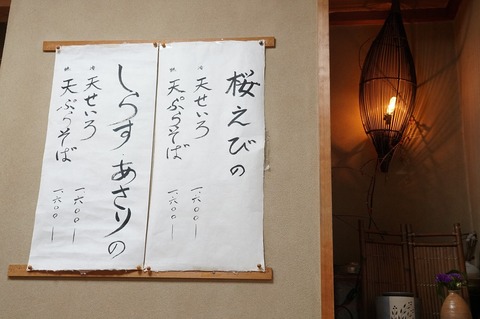 桜えびの
冷 天せいろ 一、六〇〇ー
温 天ぷらそば 一、六〇〇ー
しらす あさりの
冷 天せいろ 一、六〇〇ー
温 天ぷらそば 一、六〇〇ー